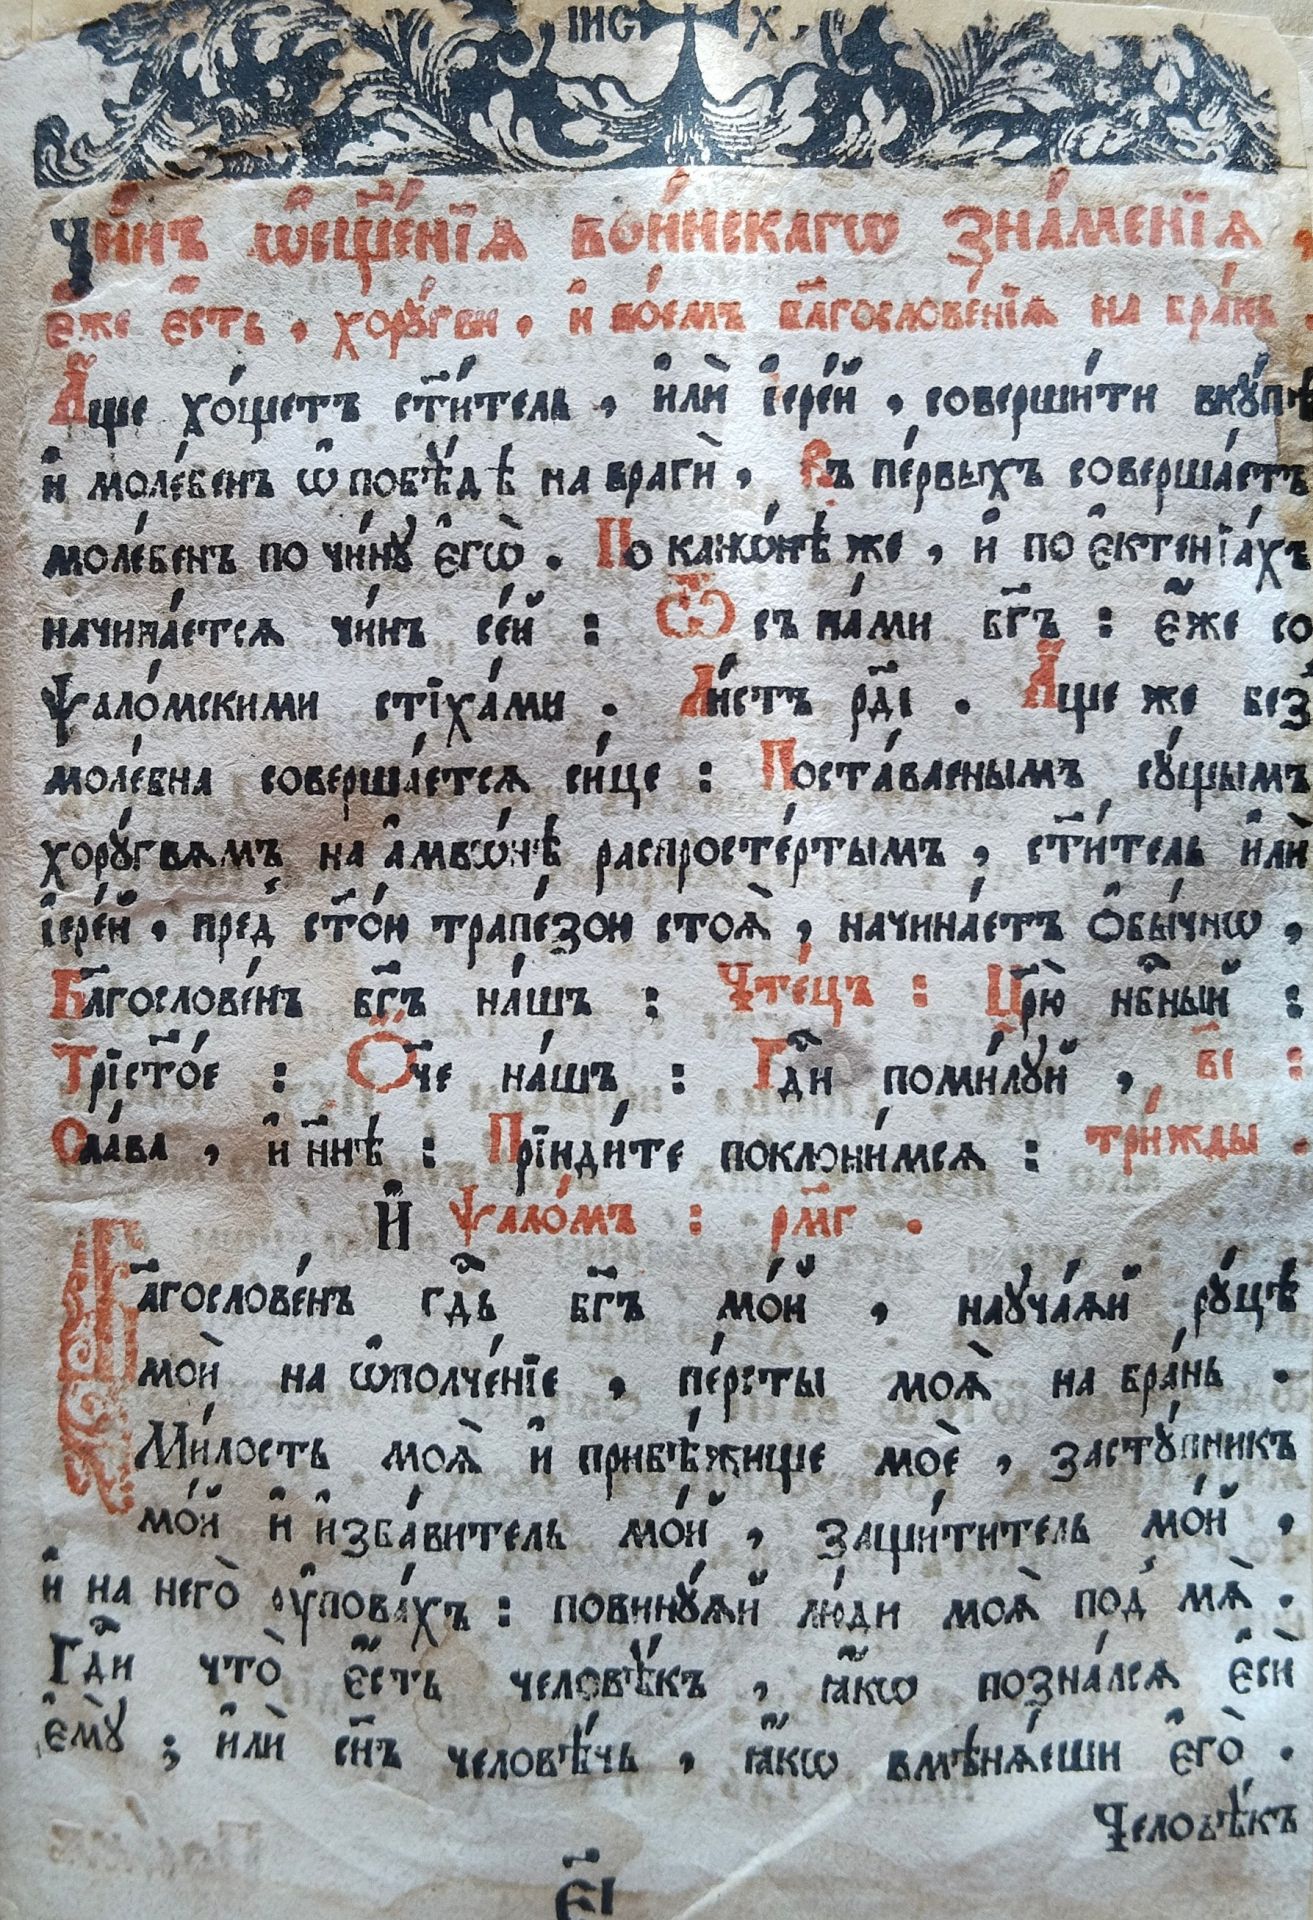 ІИС Х
Чи́нъ ѡ҆сщ҃е́нїѧ во́инскагѡ зна́менїѧ ,
є҆́же є҆́сть , хорꙋ́гви , и҆ во́емъ блгⷭ҇ослове́нїѧ на бра́нь
А҆́ще хо́щетъ ст҃и́тель , и҆лѝ і҆ере́й , соверши́ти вкꙋ́пѣ
и҆ моле́бенъ ѡ҆ побѣ́дѣ на врагѝ , Въ пе́рвыхъ соверша́етъ
моле́бенъ по чи́нꙋ є҆гѡ̀ . По канѡ́нѣ же , и҆ по є҆ктенїа́хъ
начина́етсѧ чи́нъ се́й : Ѿ съ на́ми бг҃ъ : є҆́же со
ѱало́мскими стїха́ми . Ли́стъ рд҃і . А҆́ще же без̾
моле́бна соверша́етсѧ си́це : Поста́вленымъ сꙋ́щымъ
хорꙋ́гвѧмъ на а҆мвѡ́нѣ распросте́ртымъ , ст҃и́тель и҆лѝ
і҆ере́й , пред̾ ст҃о́ю трапе́зою стоѧ̀ , начина́етъ ѻ҆бы́чнѡ ,
Бл҃гослове́нъ бг҃ъ на́шъ : Чте́цъ : Цр҃ю̀ нбⷭ҇ный :
Трїст҃о́е : Ѻ҆́ч҃е на́шъ : Гдⷭ҇и поми́лꙋй , в҃і :
Сла́ва , и҆ нн҃ѣ : Прїиди́те поклони́мсѧ : три́жды .
И҆ ѱало́мъ : рм҃г .
Бл҃гослове́нъ гдⷭ҇ь бг҃ъ мо́й , наꙋча́ѧй рꙋ́цѣ
моѝ на ѡ҆полче́нїе , пе́рсты моѧ̀ на бра́нь .
Ми́лость моѧ̀ и҆ прибѣ́жище моѐ , застꙋ́пникъ
мо́й и҆ и҆зба́витель мо́й , защи́титель мо́й ,
и҆ на него̀ ᲂу҆пова́хъ : повинꙋ́ѧй лю́ди моѧ̀ под̾ мѧ̀ .
Гдⷭ҇и что̀ є҆́сть человѣ́къ , ꙗ҆́кѡ позна́лсѧ є҆сѝ
є҆мꙋ̀ ; и҆лѝ сн҃ъ человѣ́чь , ꙗ҆́кѡ вмѣнѧ́еши є҆го̀ .
Человѣ́къ
є҃і